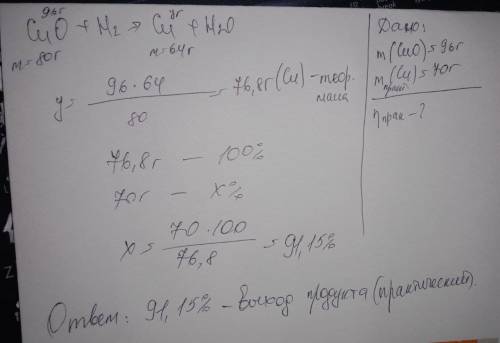 96г yг
CuO + H2 → Cu + H2O
m=80г m=64г
y = 96·64 / 80 = 76,8г (Cu) - теор. масса
76,8г — 100%
70г — x%
x = 70·100 / 76,8 = 91,15%
Ответ: 91,15% - выход продукта (практический).
Дано:
m(CuO) = 96г
m практ.(Cu) = 70г
η прак - ?